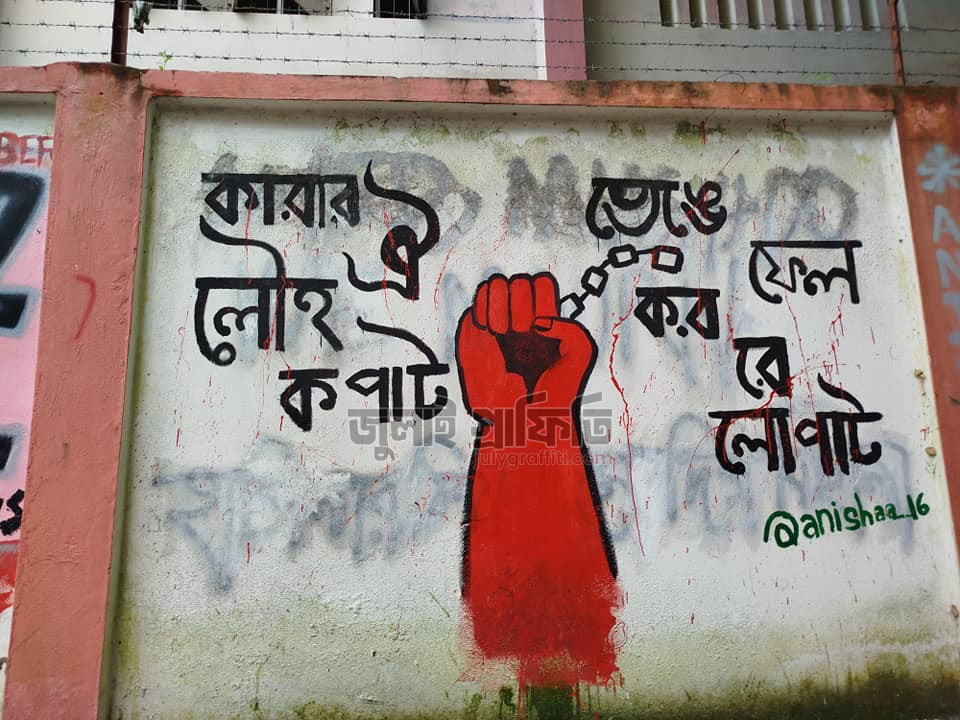 কারার ঐ
লৌহ
কপাট
ভেঙে
ফেল
কর
রে
লোপাট
@anishaa_16
জুলাই গ্রাফিতি
julygraffiti.com
BER